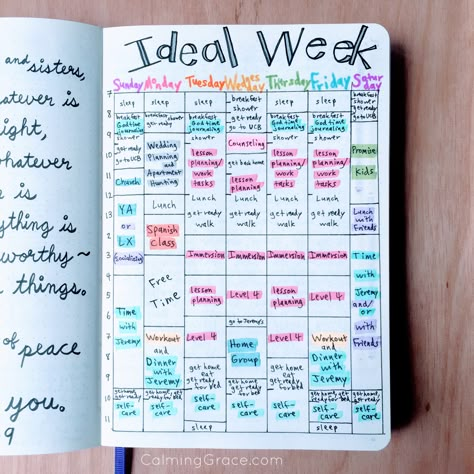 and
sisters,
whatever is
right,
whatever
is
anything is
worthy~
things.
of peace
you.
9
Ideal Week
Sunday Monday Tuesday Wednesday Thursday Friday Saturday
7
sleep sleep sleep breakfast shower sleep sleep breakfast shower
8
breakfast God time journaling
breakfast shower get ready
breakfast God time journaling
get ready go to UCB
breakfast God time journaling
breakfast God time journaling
get ready go to UCB
9
shower
shower
shower
shower
10
get ready go to UCB
Wedding Planning and Apartment Hunting
lesson planning/ work tasks
Counseling
lesson planning/ work tasks
lesson planning/ work tasks
Promise Kids
11
Church
get back home
lesson planning
12
Lunch Lunch Lunch Lunch Lunch
13
YA or LX
get ready walk
get ready walk
get ready walk
get ready walk
Lunch with Friends
Spanish Class
3
(Socializing)
Immersion Immersion Immersion Immersion
Time with Jeremy and/or with Friends
Free Time
5
lesson planning
Level 4
lesson planning
Level 4
Time with Jeremy
go to Jeremy's
7
Workout and Dinner with Jeremy
Level 4
Home Group
Level 4
Workout and Dinner with Jeremy
8
get home eat get ready for bed
get home eat get ready for bed
10
get home, get ready for bed
11
self-care self-care self-care self-care self-care self-care self-care
sleep sleep
CalmingGrace.com